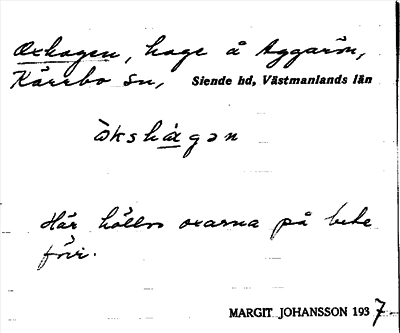 Oxhagen, hage å Aggarön,
Kärrbo sn, Siende hd, Västmanlands län
òkshàgən
Här höllos oxarna på bete
förr.
MARGIT JOHANSSON 1937.